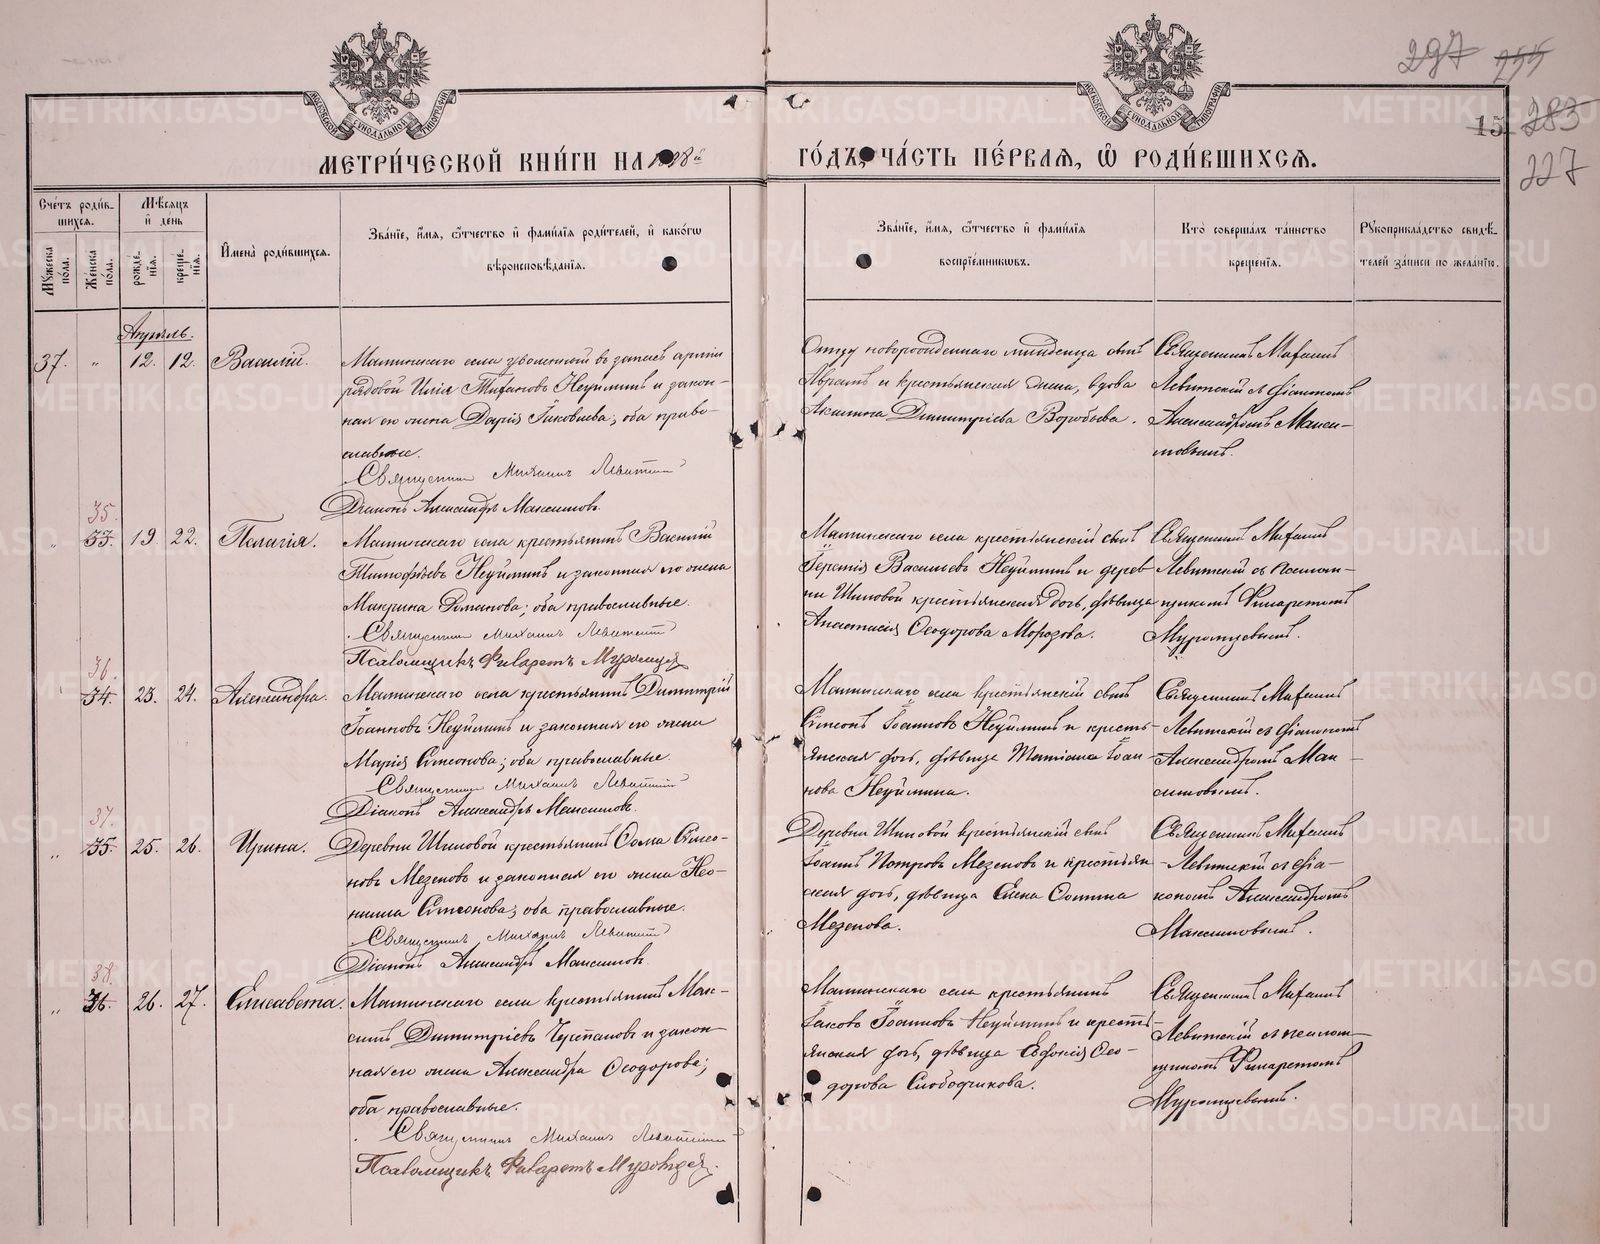 297 255
15 283
227
МОСКОВСКОЙ СѴНОДАЛЬНОЙ ТИПОГРАФІИ
МОСКОВСКОЙ СѴНОДАЛЬНОЙ ТИПОГРАФІИ
МЕТРИ́ЧЕСКОЙ КНИ́ГИ НА 1898й
ГО́ДЪ, ЧА́СТЬ ПЕ́РВАЯ, Ѡ РОДИ́ВШИХСЯ.
Сче́тъ роди́вшихся.
Мѣ́сяцъ и де́нь
Му́жеска по́ла.
Же́нска по́ла.
рожде́нія.
креще́нія.
Имена̀ роди́вшихся.
Зва́ніе, и́мя, о́тчество и фами́лія роди́телей, и како́гѡ
вѣроисповѣ́данія.
Зва́ніе, и́мя, о́тчество и фами́лія
воспріе́мникѡвъ.
Кто̀ соверша́лъ та́инство
креще́нія.
Рꙋкоприкла́дство свидѣ́телей за́писи по жела́нію.
Апрѣль.
37. " 12. 12. Василій.
села уволенный въ запасъ арміи
рядовой Илія Неуйминъ и закон-
ная его жена Дарія Іаковлева; оба право-
славные.
Священникъ Михаилъ Левитскій
Діаконъ Александръ Максимовъ.
Отцу новорожденнаго младенца сынъ
и крестьянская жена, вдова
Акилина Димитріева Воробьева.
Священникъ Михаилъ
Левитскій съ діакономъ
Александромъ Макси-
мовымъ.
35.
" 33. 19. 22. Пелагія.
села крестьянинъ Василій
Тимофѣевъ Неуйминъ и законная его жена
Макрина Романова; оба православные.
Священникъ Михаилъ Левитскій
Псаломщикъ Филаретъ Муромцевъ
села крестьянскій сынъ
Василіевъ Неуйминъ и дерев-
ни Шиповой крестьянская дочь, дѣвица
Анастасія Ѳеодорова Морозова.
Священникъ Михаилъ
Левитскій съ псалом-
щикомъ Филаретомъ
Муромцевымъ.
36.
" 34. 23. 24. Александра.
села крестьянинъ Димитрій
Іоанновъ Неуйминъ и законная его жена
Марія Сімеонова; оба православные.
Священникъ Михаилъ Левитскій
Діаконъ Александръ Максимовъ.
села крестьянскій сынъ
Сімеонъ Іоанновъ Неуйминъ и кресть-
янская дочь, дѣвица Іоан-
нова Неуймина.
Священникъ Михаилъ
Левитскій съ діакономъ
Александромъ Мак-
симовымъ.
37.
" 35. 25. 26. Ирина.
Деревни Шиповой крестьянинъ Ѳома Сімео-
новъ Мезеновъ и законная его жена Нео-
нила Сімеонова; оба православные.
Священникъ Михаилъ Левитскій
Діаконъ Александръ Максимовъ
Деревни Шиповой крестьянскій сынъ
Іоаннъ Петровъ Мезеновъ и крестьян-
ская дочь, дѣвица Елена Ѳомина
Мезенова.
Священникъ Михаилъ
Левитскій съ діа-
кономъ Александромъ
Максимовымъ.
38.
" 36. 26. 27. Елисавета.
села крестьянинъ Мак-
симъ Димитріевъ Черепановъ и закон-
ная его жена Александра Ѳеодорова;
оба православные.
Священникъ Михаилъ Левитскій
Псаломщикъ Филаретъ Муромцевъ.
села крестьянинъ
Іаковъ Іоанновъ Неуйминъ и кресть-
янская дочь, дѣвица Евдокія Ѳео-
дорова Слободчикова.
Священникъ Михаилъ
Левитскій съ псалом-
щикомъ Филаретомъ
Муромцевымъ.
METRIKI.GASO-URAL.RU